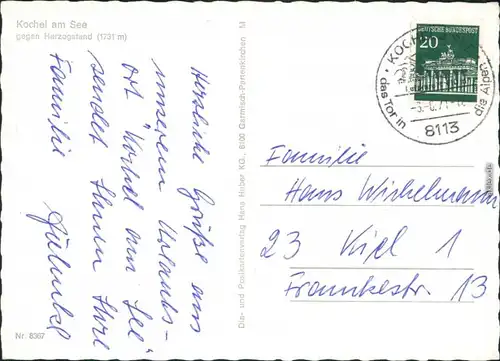 Kochel am See
gegen Herzogstand (1731 m)
Herzliche Grüße aus
unserem Urlaubs-
ort "Kochel am See"
sendet Ihnen Ihre
Familie
Nr. 8367
Dia- und Postkartenverlag Hans Huber KG., 8100 Garmisch-Partenkirchen M
DEUTSCHE BUNDESPOST
20
KOCHEL
das Tor in die Alpen
8113
Familie
Hans Winkelmann
23 Kiel 1
Frankestr. 13